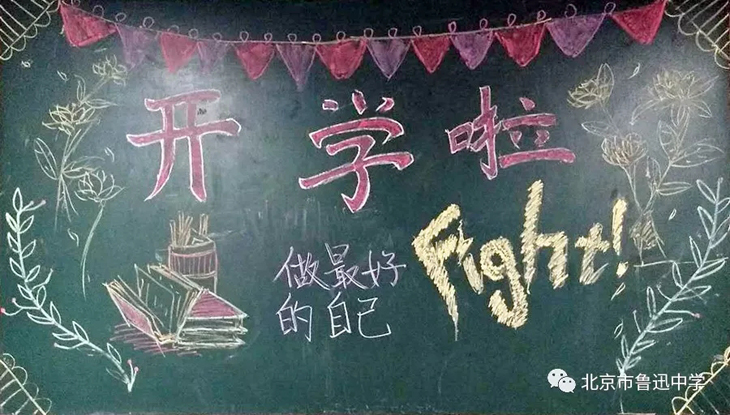 开学啦
做最好
的自己
Fight!
北京市鲁迅中学